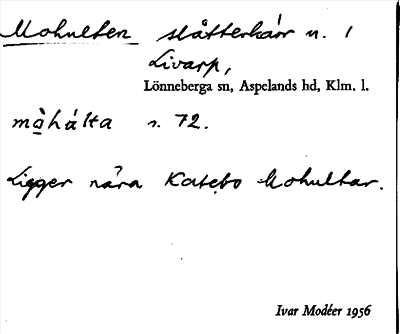 Mohulten slåtterkärr n. 1
Livarp,
Lönneberga sn, Aspelands hd, Klm. l.
mo̠hu̇lta s. 72.
Ligger nära Katebo Mohultar.
Ivar Modéer 1956